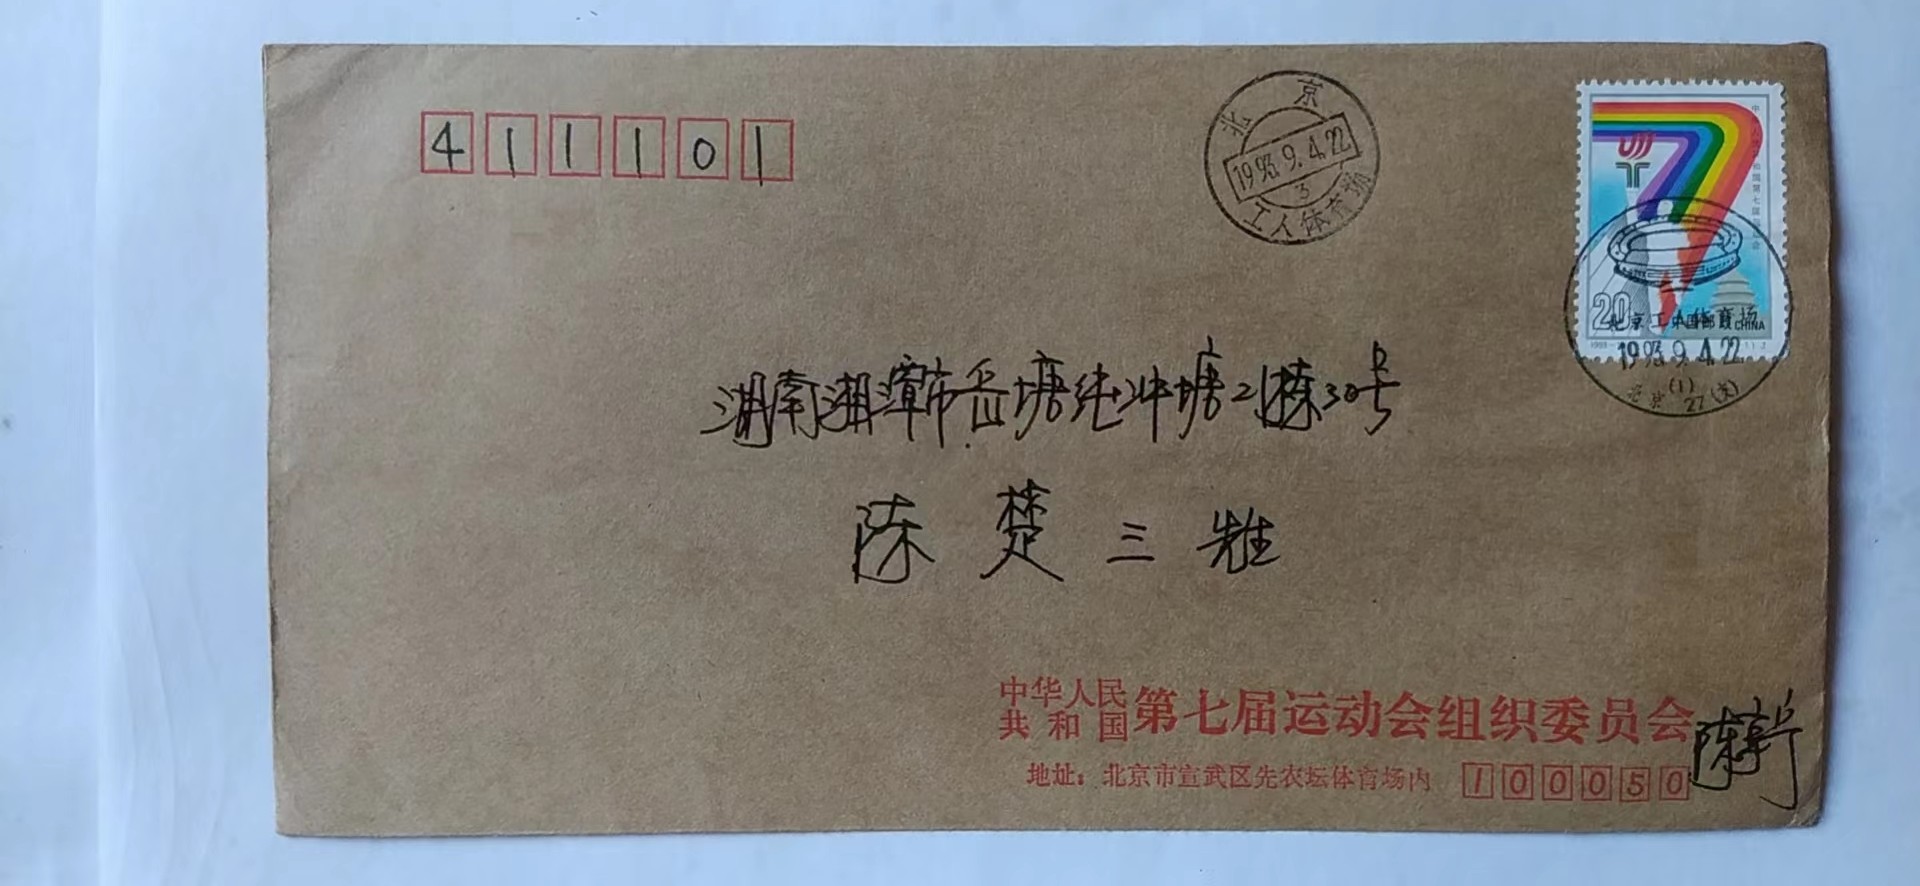 411101
北京
1993.9.4.22
3
工人体育场
中华人民共和国第七届运动会
20
中国邮政 CHINA
北京工人体育场
1993.9.4.22
北京
(1)
27(支)
湖南湘潭市岳塘纯冲塘21栋30号
陈楚三
中华人民共和国第七届运动会组织委员会
地址：北京市宣武区先农坛体育场内 100050